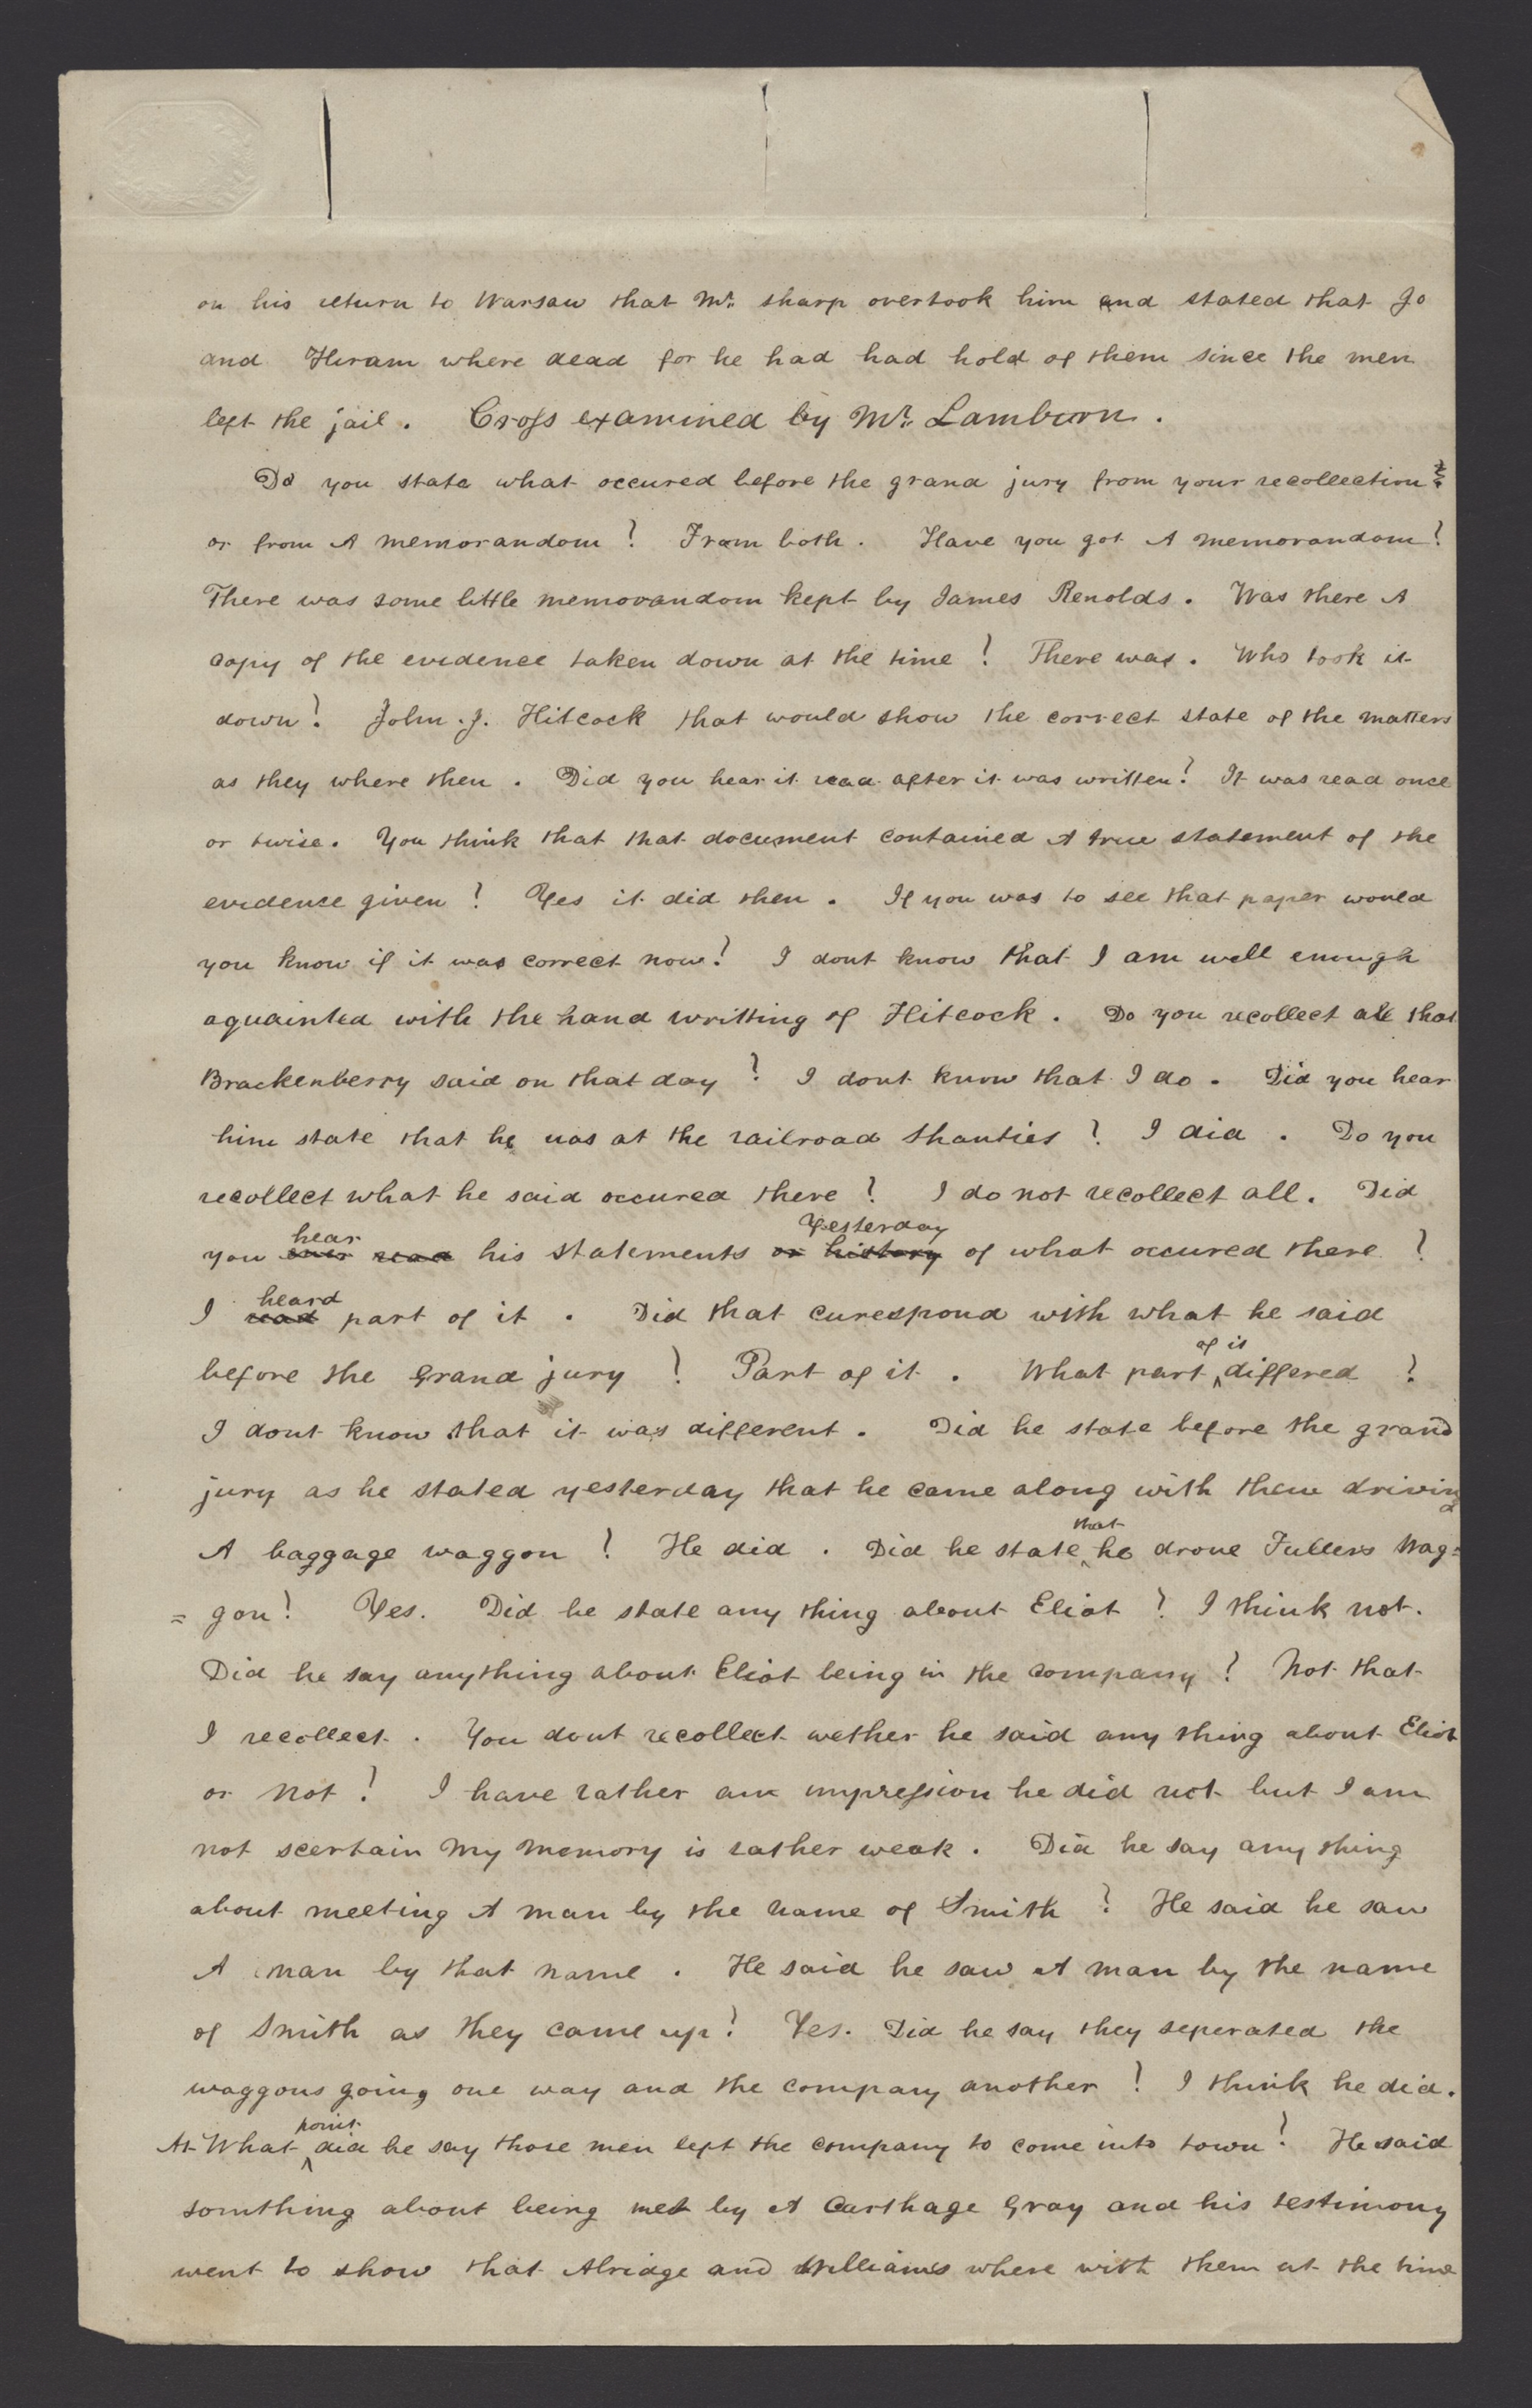 on his return to Warsaw that Mr. sharp overtook him and stated that Jo
and Hiram where dead for he had had hold of them since the men
left the jail. Cross examined by Mr. Lamburn.
Do you state what occured before the grand jury from your recollection
or from A memorandom? From both. Have you got A memorandom?
There was some little memorandom kept by James Renolds. Was there A
copy of the evidence taken down at the time? There was. Who took it
down? John. J. Hitcock that would show the correct state of the matters
as they where then. Did you hear it read after it was written? It was read once
or twise. You think that that document contained A true statement of the
evidence given? Yes it did then. If you was to see that paper would
you know if it was correct now? I dont know that I am well enough
aquainted with the hand writting of Hitcock. Do you recollect all that
Brackenberry said on that day? I dont know that I do. Did you hear
him state that he was at the railroad shanties? I did. Do you
recollect what he said occured there? I do not recollect all. Did
you ever read hear his statements or history Yesterday of what occured there?
I read heard part of it. Did that curespond with what he said
before the Grand jury? Part of it. What part of it differed?
I dont know that it was different. Did he state before the grand
jury as he stated yesterday that he came along with them driving
A baggage waggon? He did. Did he state that he drove Fullers Wag=
= gon? Yes. Did he state any thing about Eliot? I think not.
Did he say anything about Eliot being in the company? Not that
I recollect. You dont recollect wether he said any thing about Eliot
or not? I have rather an impression he did not but I am
not scertain My Memory is rather weak. Did he say any thing
about meeting A man by the name of Smith? He said he saw
A man by that name. He said he saw A man by the name
of Smith as they came up? Yes. Did he say they seperated the
waggons going one way and the company another? I think he did.
At What point did he say those men left the company to come into town? He said
somthing about being met by A Carthage Gray and his testimony
went to show that Alridge and Williams where with them at the time